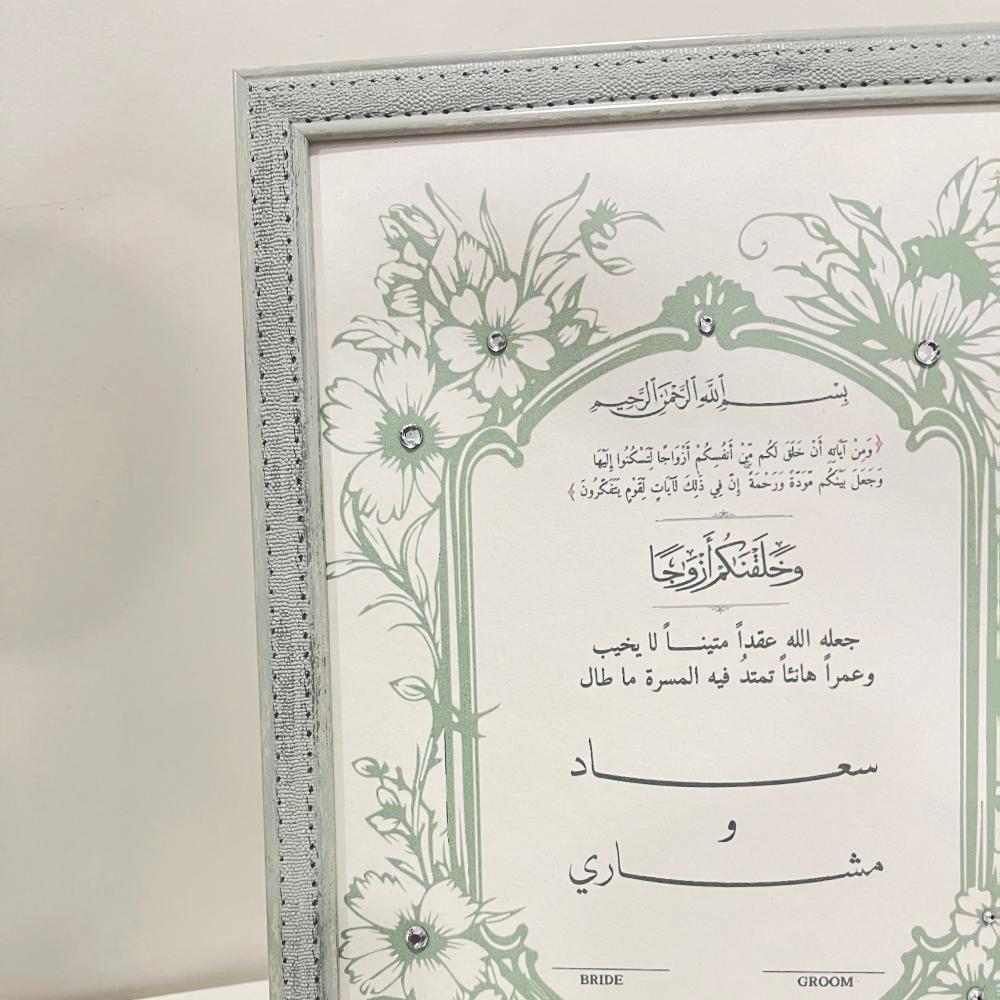 بِسْمِ ٱللَّهِ ٱلرَّحْمَٰنِ ٱلرَّحِيمِ
﴿وَمِنْ آيَاتِهِ أَنْ خَلَقَ لَكُم مِّنْ أَنفُسِكُمْ أَزْوَاجًا لِّتَسْكُنُوا إِلَيْهَا
وَجَعَلَ بَيْنَكُم مَّوَدَّةً وَرَحْمَةً إِنَّ فِي ذَٰلِكَ لَآيَاتٍ لِّقَوْمٍ يَتَفَكَّرُونَ﴾
وَخَلَقْنَاكُمْ أَزْوَاجًا
جعله الله عقداً متينـــاً لا يخيب
وعمراً هانئاً تمتدُ فيه المسرة ما طال
سعـــــاد
و
مشـــــاري
BRIDE GROOM